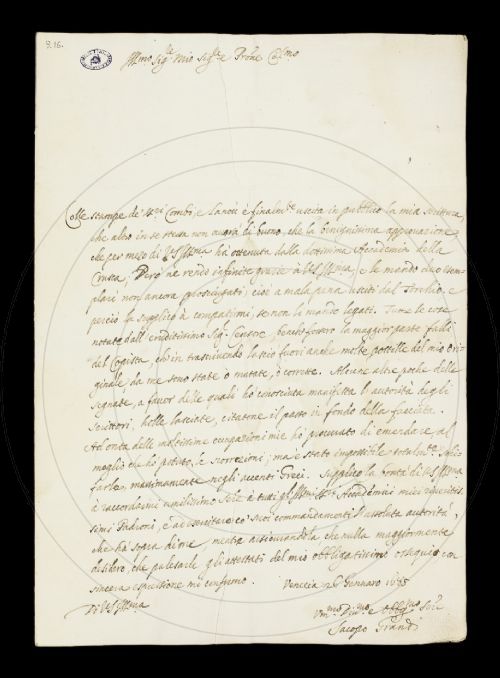 9.16.
Ill.mo Sig.r mio Sig.r e Prone Col.mo
Colle stampe de' SS.ri Combi, e Lanoù è finalm.te uscita in pubblico la mia Scrittura,
che altro in se stessa non avrà di buono, che la benignissima approvazione
che per mezo di VS Ill.ma hà ottenuta dalla dottissima Accademia della
Crusca; Però ne rendo infinite grazie à VS Ill.ma, e le mando due Esem-
plari non ancora prosciugati, cioè à mala pena usciti dal Torchio, e
perciò la supplico à compatirmi, se non li mando legati. Tutte le cose
notate dall'eruditissimo Sig.r Censore, benché fossero la maggior parte falli
del Copista, che in trascrivendo lasciò fuori anche molte postille del mio ori-
ginale, da me sono state ò mutate, ò corrette. Alcune altre poche delle
segnate, à favor delle quali hò conosciuta manifesta l'autorità degli
Scrittori, holle lasciate, citatone il passo in fondo della facciata.
Ad onta delle moltissime occupazioni mie hò procurato di emendare al
meglio che hò potuto, le scorrezioni; ma è stato impossibile totalm.te
farlo, massimamente negli accenti Greci. Supplico la bontà di VS Ill.ma
à raccordarmi umilissimo Ser.e à tutti gl'Ill.mi SS.ri Accademici miei riveritis-
simi Padroni, e ad esercitare co' suoi commandamenti l'assoluta autorità,
che hà sopra di me, mentre assicurandola che nulla maggiormente
desidero, che palesarle gli attestati del mio obbligatissimo ossequio, con
sincera espressione mi confermo. Venezia Gennaro
Di VS Ill.ma
Um.mo Div.mo e Obblig.mo Ser.e
Jacopo Grandi